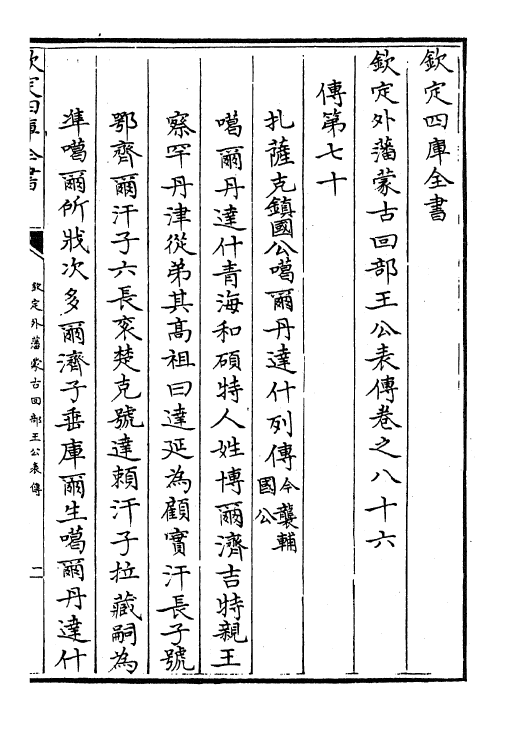 欽定四庫全書
欽定外藩蒙古回部王公表傳卷之八十六
傳第七十
扎薩克鎮國公噶爾丹達什列傳今襲輔國公
噶爾丹達什青海和碩特人姓博爾濟吉特親王
察罕丹津從弟其高祖曰達延為顧實汗長子號
鄂齊爾汗子六長衮楚克號達賴汗子拉藏嗣為
準噶爾所戕次多爾濟子垂庫爾生噶爾丹達什
欽定四庫全書
欽定外藩蒙古回部王公表傳